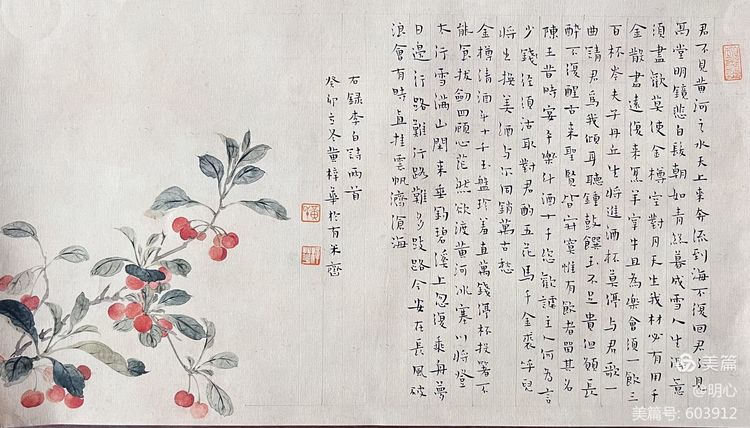 君不見黃河之水天上來奔流到海不復回君不見
高堂明鏡悲白髮朝如青絲暮成雪人生得意
須盡歡莫使金樽空對月天生我材必有用千
金散盡還復來烹羊宰牛且為樂會須一飲三
百杯岑夫子丹丘生將進酒杯莫停與君歌一
曲請君為我傾耳聽鍾鼓饌玉不足貴但願長
醉不復醒古來聖賢皆寂寞惟有飲者留其名
陳王昔時宴平樂斗酒十千恣歡謔主人何為言
少錢徑須沽取對君酌五花馬千金裘呼兒
將出換美酒與尔同銷萬古愁
金樽清酒斗十千玉盤珍羞直萬錢停杯投箸不
能食拔劍四顧心茫然欲渡黃河冰塞川將登
太行雪滿山閑來垂釣碧溪上忽復乘舟夢
日邊行路難行路難多歧路今安在長風破
浪會有時直挂雲帆濟滄海
右錄李白詩兩首
癸卯立冬黃梓華於有米齋
美篇
@明心
美篇号: 603912